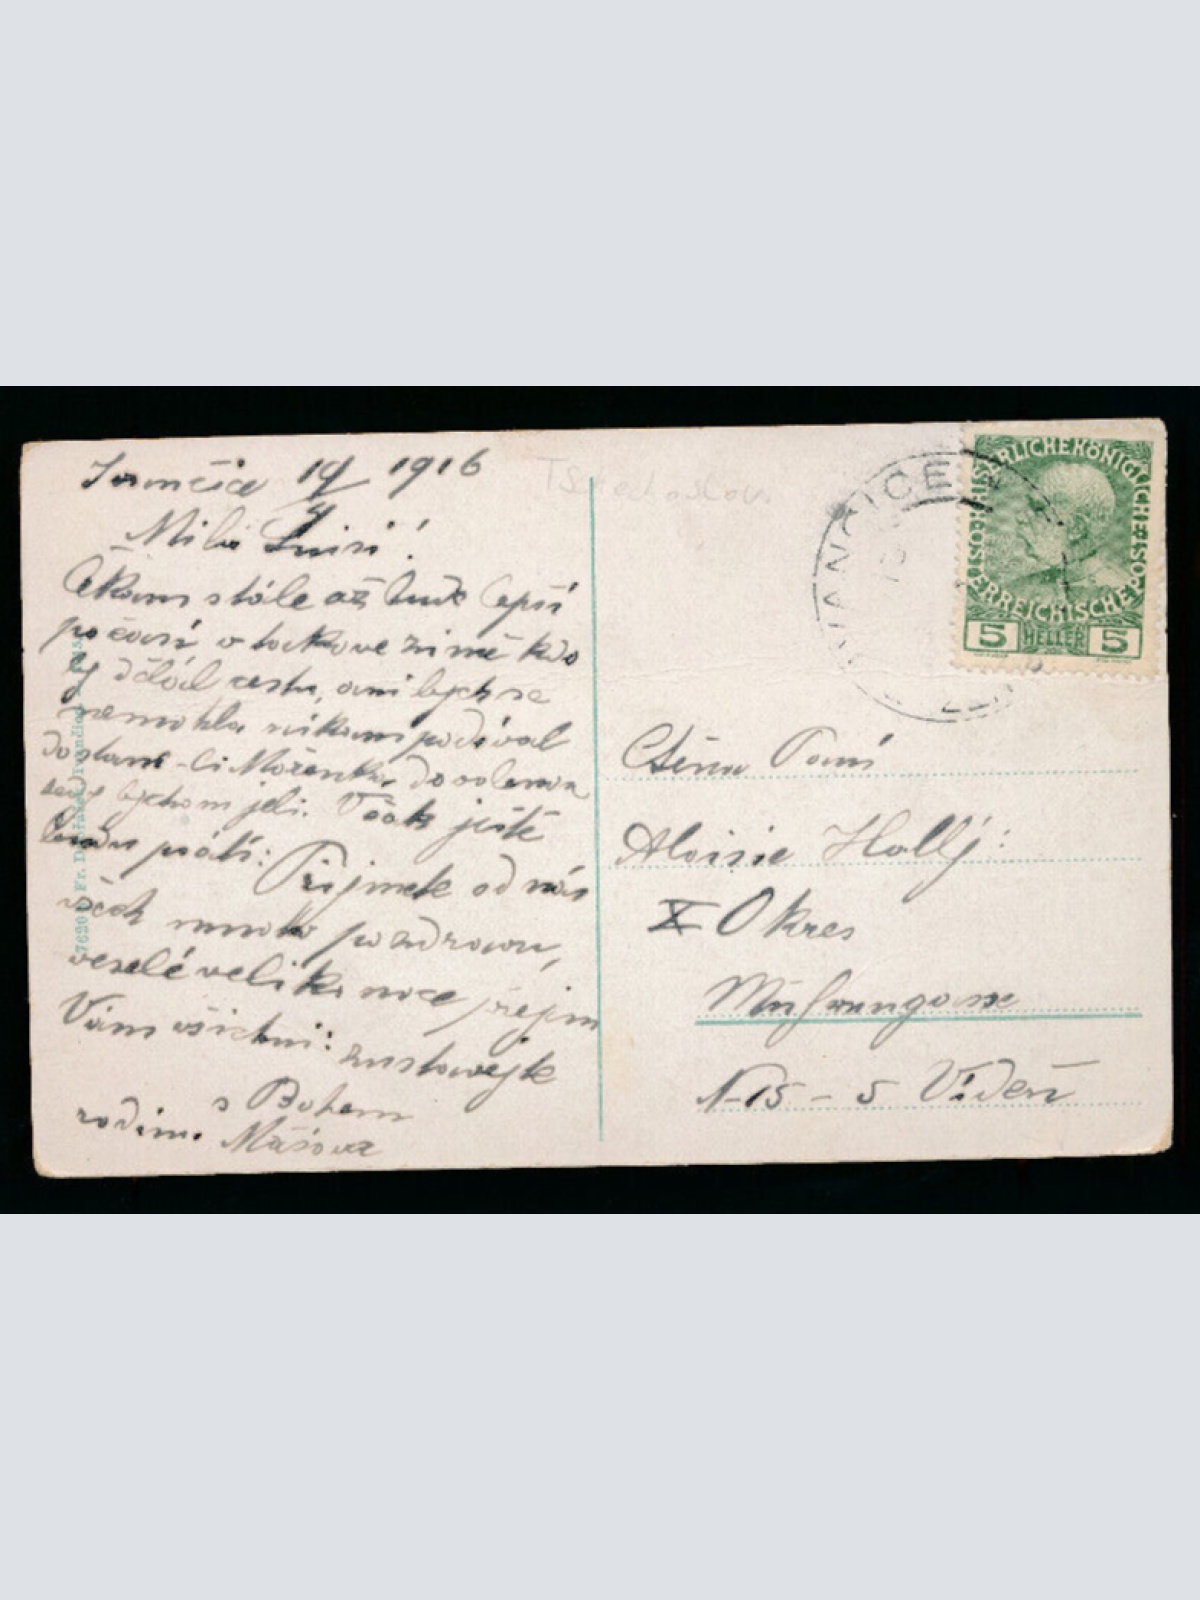 Ivančice 19/4 1916
Milá Luisi!
Čekám stále až bude lepší
počasí v takove zimě kdo
by dělal cestu, ani bych se
nemohla nikam podívat
dostane-li Mařenka dovolenou
tedy bychom jeli. Však ještě
budu psáti: Přijmete od nás
všech mnoho pozdravu,
veselé velikonoce přejem
Vám všichni: zustavejte
s Bohem
rodina Mášova
Tschechoslow.
IVANČICE
KAISERLICHE KÖNIGLICHE ÖSTERREICHISCHE POST
5 HELLER 5
Ctěna Paní
Aloisie Hollý:
X Okres
Muhrengasse
N-15-5 Videň